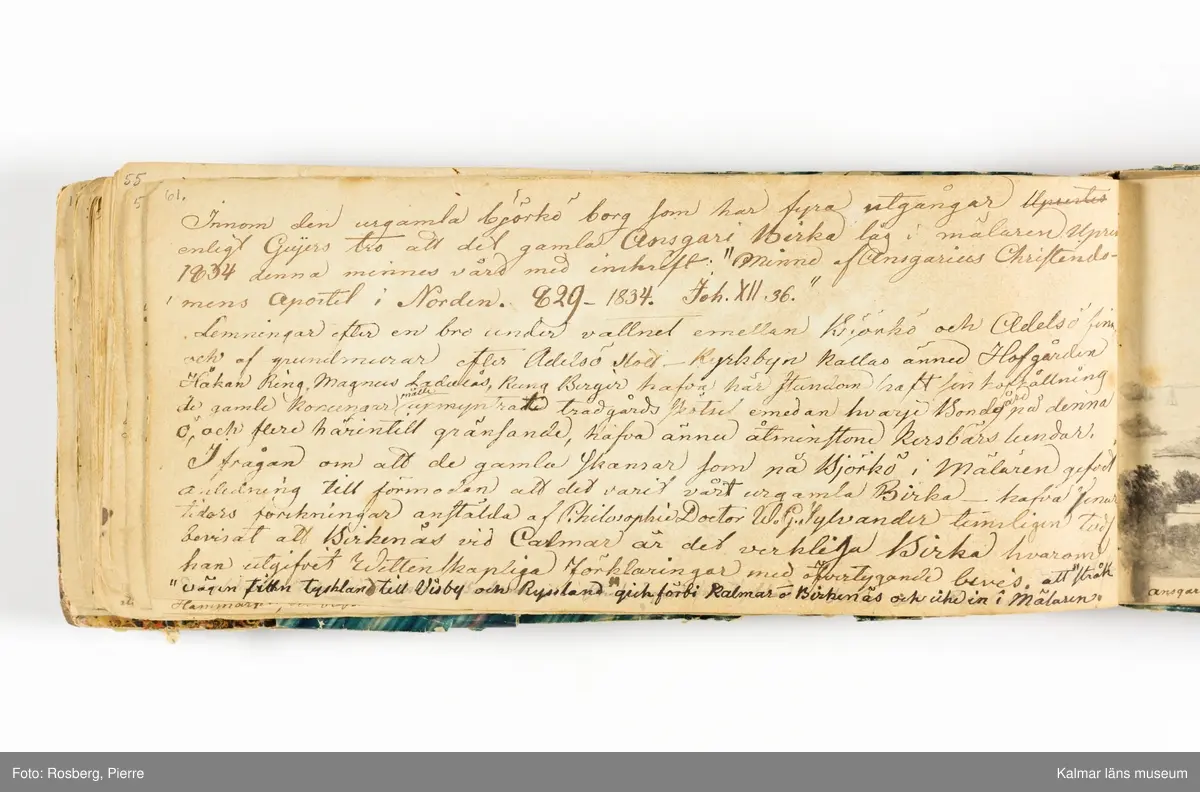 55
5
61.
Innom den urgamla Björkö borg som har fyra utgångar Uprestes
enligt Geijers tro att det gamla Ansgari Birka låg i mälaren Upres
1834 denna minnes vård med inskrift: "Minne af Ansgarius Christendo-
mens Apostel i Norden. 829 - 1834. Joh. XII. 36."
Lemningar efter en bro under vattnet emellan Björkö och Adelsö fins
och af grundmurar efter Adelsö slott - Kyrkbyn kallas ännu Hofgården
Håkan Ring, Magnus Ladulås, Kung Birger hafva här stundom haft sin hofhållning
måtte
de gamle konungar upmuntrade trädgårds skötsel emedan hvarje Bondgård på denna
ö, och flere härintill gränsande, hafva ännu åtminstone kersbärs lundar.
I frågan om att de gamla skansar som på Björkö i Mälaren gifvit
anledning till förmodan att det varit vårt urgamla Birka - hafva senare
tiders forskningar anstälda af Philosophie Doctor W. G. Sylvander temligen tydl
bevisat att Birkenäs vid Calmar är det verkliga Birka hvarom
han utgifvit Wettenskapliga Förklaringar med öfvertygande bevis. att "stråk
"vägen från tyskland till Visby och Ryssland gick förbi Kalmar o Birkenäs och icke in i Mälaren.
ansgar
Foto: Rosberg, Pierre
Kalmar läns museum